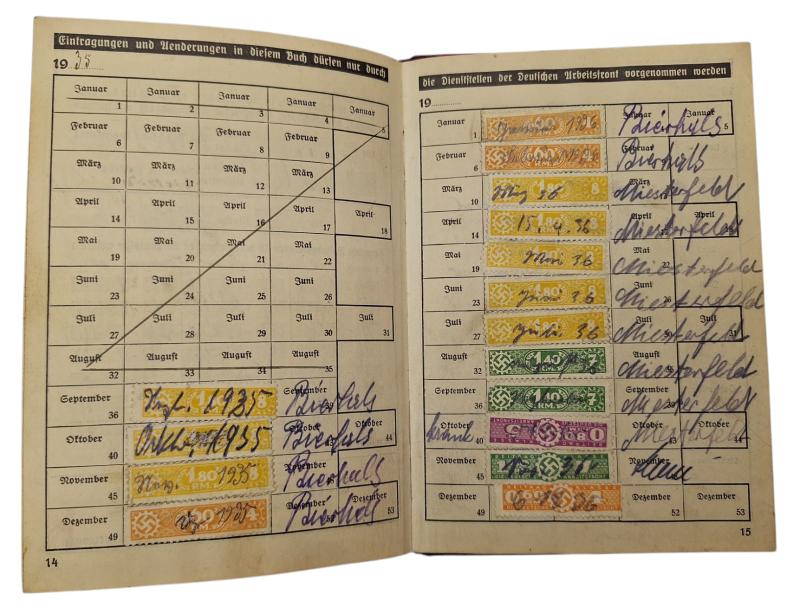 Eintragungen und Aenderungen in diesem Buch dürfen nur durch
19 35
Januar Januar Januar Januar Januar
1 2 3 4 5
Februar Februar Februar Februar
6 7 8 9
März März März März
10 11 12 13
April April April April April
14 15 16 17 18
Mai Mai Mai Mai
19 20 21 22
Juni Juni Juni Juni
23 24 25 26
Juli Juli Juli Juli Juli
27 28 29 30 31
August August August August
32 33 34 35
September 1.1935 8 September Bierhals
36
Oktober 1935 Oktober Bierhals
40 44
November 1.80 1935 November Bierhals
45
Dezember 1935 Dezember Bierhals
49 53
14
die Dienststellen der Deutschen Arbeitsfront vorgenommen werden
19
Januar Januar 1936 Januar Januar Bierhals
1 5
Februar 1936 Februar Bierhals
6
März März 36 8 März Miesterfeld
10
April 1.80 15. 4. 36 April April Miesterfeld
14
Mai Mai 36 Mai Miesterfeld
19 22
Juni 1.80 Juni 36 Juni Miesterfeld
23 26
Juli Juli 36 Juli Juli Miesterfeld
27 31
August 1.40 RM. 7 August Miesterfeld
32
September 1.40 RM. 7 September Miesterfeld
36
Oktober krank Oktober Miesterfeld
40
November November
45
Dezember 36 Dezember Dezember
49 52 53
15